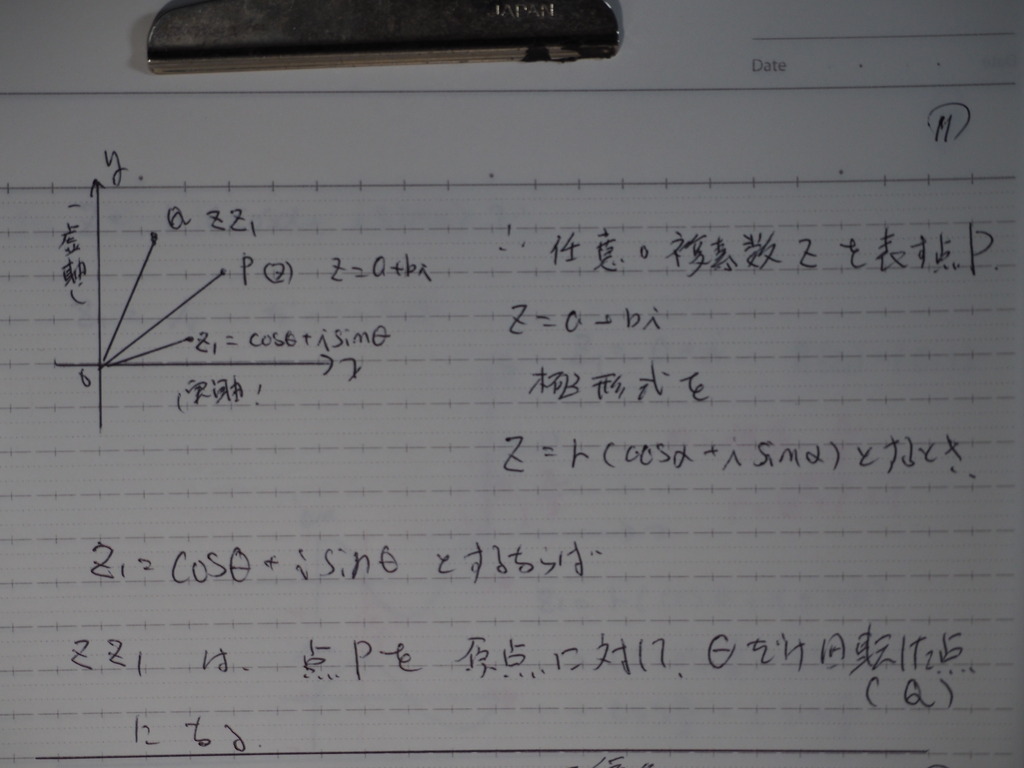 JAPAN
Date
11
y
虚軸
Q ZZ₁
P(z) Z=a+bi
Z₁=cosθ+isinθ
0
x
(実軸)
∴ 任意の複素数Zを表す点P.
Z=a+bi
極形式を
Z=r(cosα+i sinα)とすると、
Z₁=cosθ+i sinθ とするならば
ZZ₁ は、点Pを 原点に対して、θだけ回転した点
(Q)
になる.